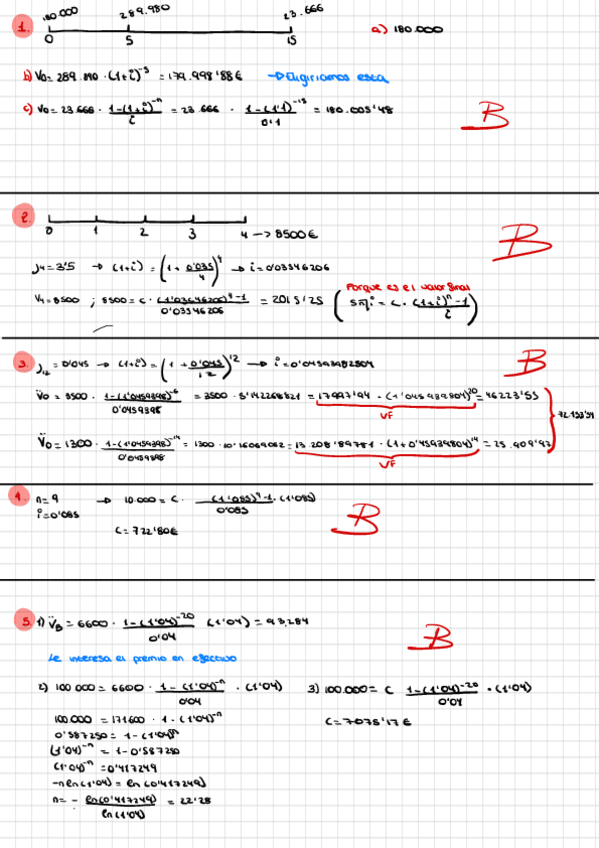 180.000 289.980 23.666
1. 0 5 15 a) 180.000
b) V0= 289.910 · (1+i)⁻⁵ = 179.998'88€ → Eligiriamos esta
c) V0= 23.666 · 1-(1+i)⁻ⁿ / i = 23.666 · 1-(1'1)⁻¹⁵ / 0'1 = 180.005'48 B
2. 0 1 2 3 4 → 8500€ B
J4= 3'5 → (1+i) = (1 + 0'035/4)⁴ → i = 0'03546206
V4= 8500 ; 8500 = C · (1'03546206)⁴-1 / 0'03546206 = 2015'25 (Sn i = C · (1+i)ⁿ-1 / i)
Porque es el valor final
3. J12 = 0'045 → (1+i) = (1 + 0'045/12)¹² → i = 0'04593982504 B
V0 = 3500 · 1-(1'0459398)⁻⁶ / 0'0459398 = 3500 · 5'142268821 = 17997'94 · (1'045939804)²⁰ = 46223'55
VF
72.133'54
V0 = 1300 · 1-(1'0459398)⁻¹⁴ / 0'0459898 = 1300 · 10'16069062 = 13.208'89781 · (1+0'45939804)¹⁴ = 25.909'97
VF
4. n= 9 → 10.000 = C · (1'085)⁹-1 · (1'085) / 0'085 B
i= 0'085
C= 722'80€
5. 1) VB = 6600 · 1-(1'04)⁻²⁰ / 0'04 (1'04) = 93.284 B
Le interesa el premio en efectivo
2) 100.000 = 6600 · 1-(1'04)⁻ⁿ / 0'04 · (1'04) 3) 100.000 = C 1-(1'04)⁻²⁰ / 0'04 · (1'04)
100.000 = 171600 · 1-(1'04)⁻ⁿ C= 7075'17€
0'587250 = 1-(1'04)ⁿ
(1'04)⁻ⁿ = 1-0'587250
(1'04)⁻ⁿ = 0'417249
-n ln(1'04) = ln(0'417249)
n= - ln(0'417249) / ln(1'04) = 22'28